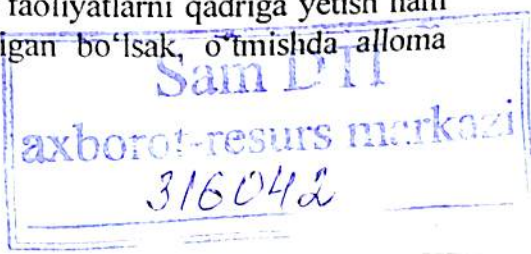 faoliyatlarni qadriga yetish ham
igan bo‘lsak, o‘tmishda alloma
Sam DTI
axborot-resurs markazi
316042